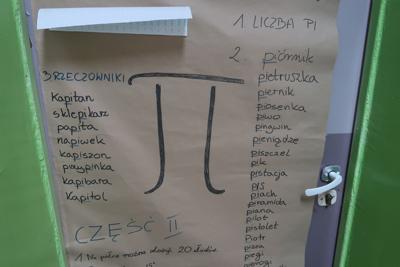 1. LICZBA PI
2. piórnik
pietruszka
piernik
piosenka
piwo
pingwin
pieniądze
piszczel
pik
pistacja
PIS
piach
piramida
piana
pilot
pistolet
Piotr
pizza
piegi
pierogi
3 RZECZOWNIKI
Kapitan
sklepikarz
papita
napiwek
kapiszon
przypinka
kapibara
Kapitol
π
CZĘŚĆ II
1. Na półce można ułożyć 20 słoików